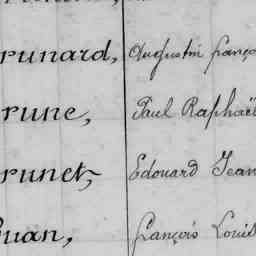 runard, Augustin franço
rune, Paul Raphaël
runet, Edouard Jean
uan, françois Louis